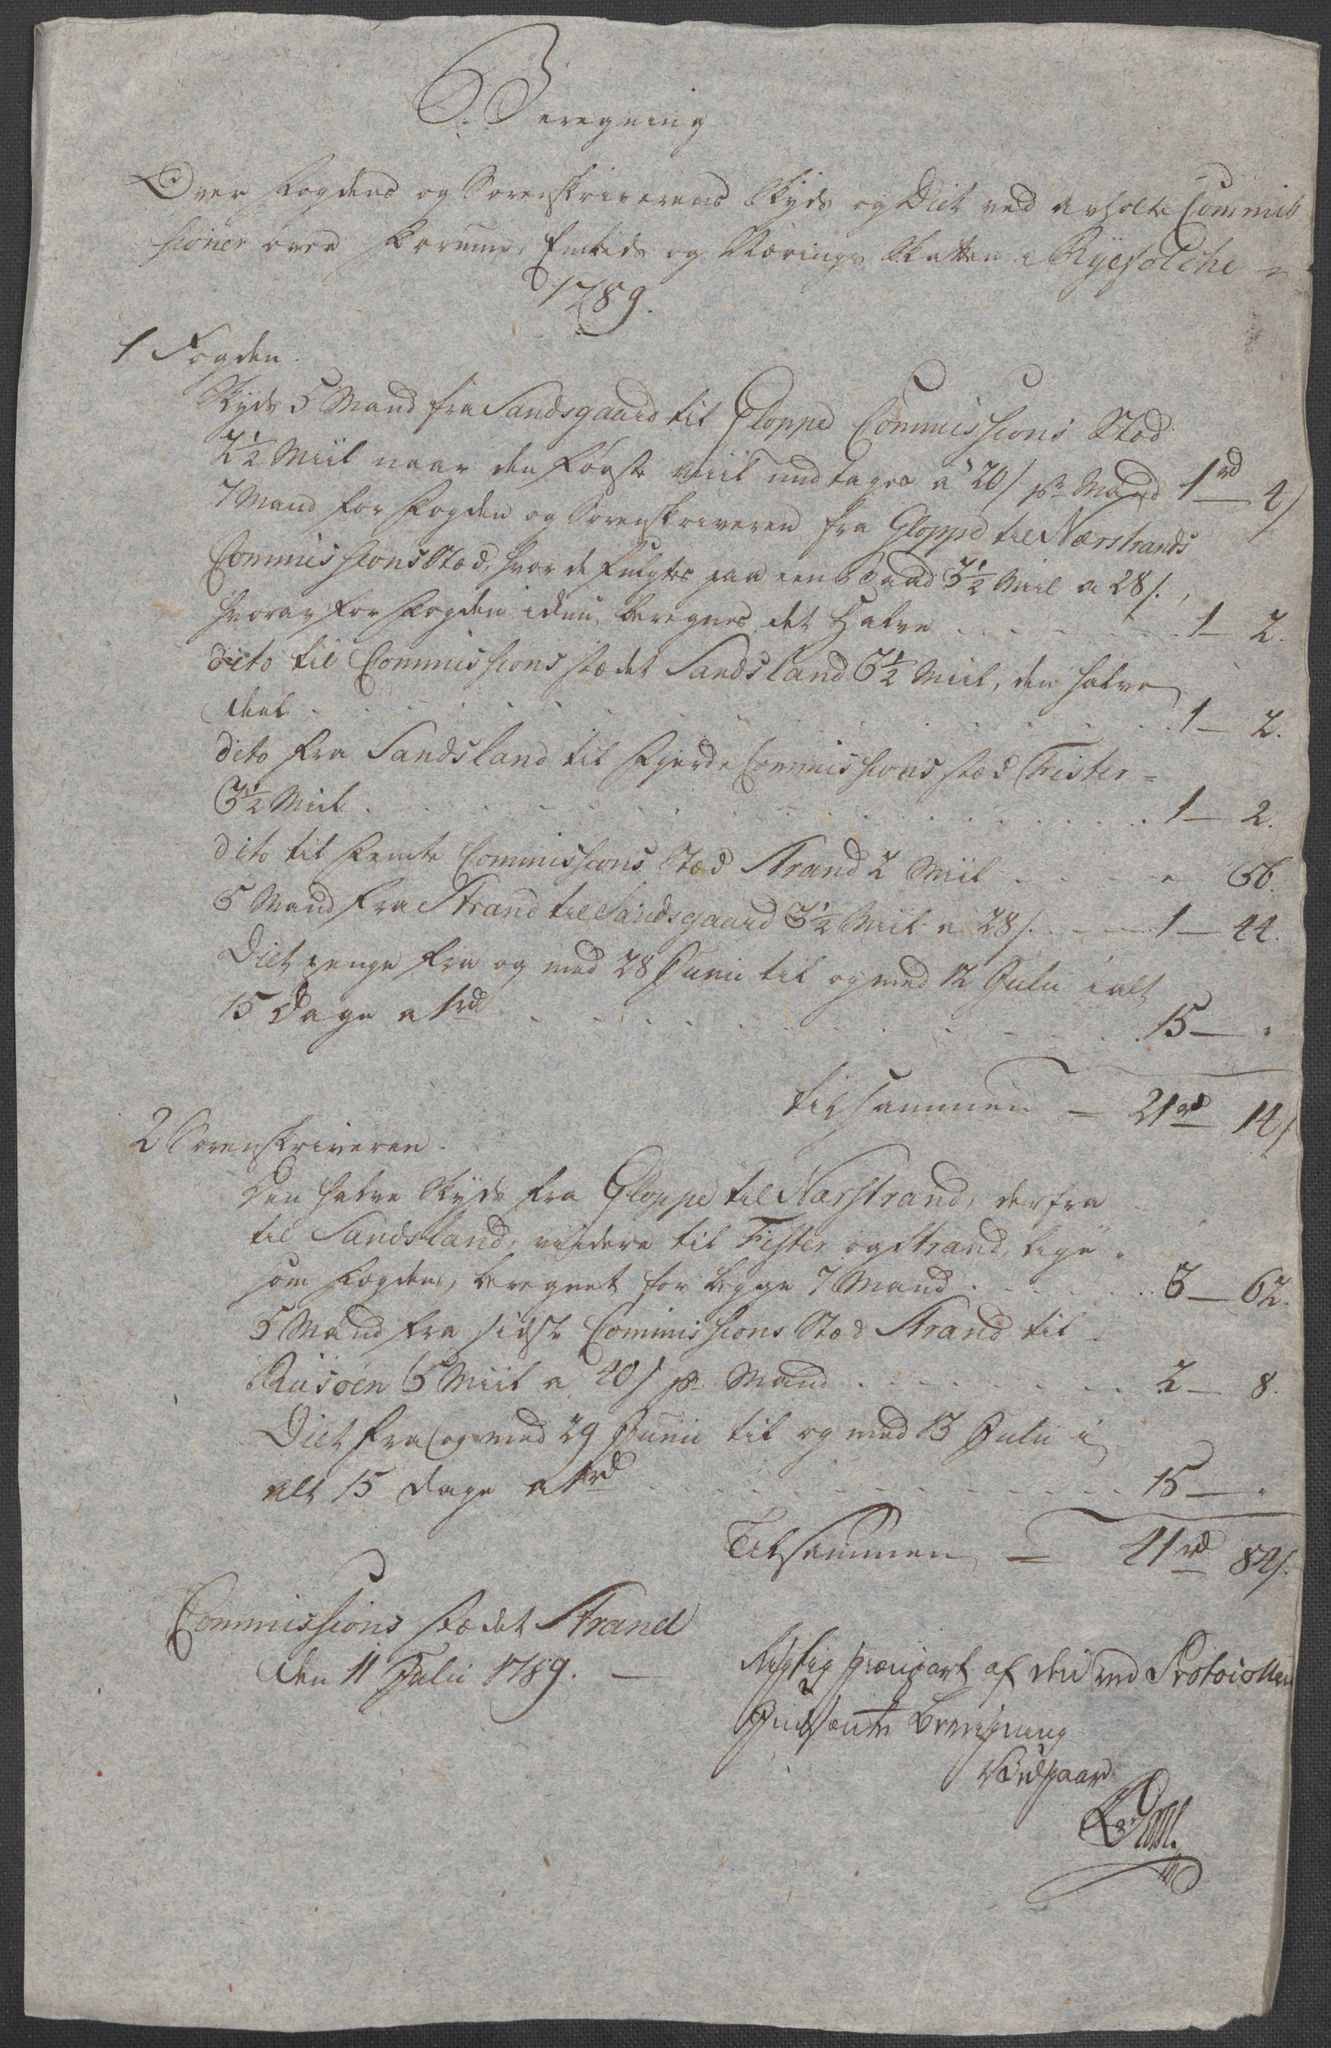 Beregning
Over Fogdens og Sorenskriverens Skyds og Diet ved afholte Commis
sioner over Formue, Embeds og Nærings Skatten i Ryefolche
1789.
1 Fogden.
Skyds 5 Mand fra Sandsgaard til Gloppe Commissions Stæd
2½ Miil naar den første Miil undtages a 20 s pr Mand 1 rd 4 s
7 Mand for Fogden og Sorenskriveren fra Gloppe til Nærstrands
Commissions Stæd, hvor de fulgtes paa een Baad 3½ Miil a 28 s.,
hvoraf for Fogden beregnes det Halve . . . . 1 — 2.
dito til Commissions stædet Sandsland 3½ Miil, den halve
deel . . . . 1 — 2.
dito fra Sandsland til fjerde Commissions stæd Fister =
3½ Miil . . . . 1 — 2.
dito til femte Commissions Stæd Strand 2 Miil . . . . „ 56.
5 Mand fra Strand til Sandsgaard 3½ Miil a 28 s. . . . 1 — 44.
Diet penge fra og med 28 Junii til og med 12 Julii i alt
15 Dage a 1 rd . . . . 15 — „
tilsammen — 21 rd 14 s
2 Sorenskriveren.
Den halve Skyds fra Gloppe til Nærstrand, derfra
til Sandsland, videre til Fister og Strand, lige
som Fogden, beregnet for begge 7 Mand . . . . 3 — 62.
5 Mand fra sidste Commissions Stæd Strand til
5 Miil a 40 s pr Mand . . . . 2 — 8.
Diet fra og med 29 Junii til og med 13 Julii i
alt 15 dage a 1 rd . . . . 15 — „
Tilsammen — 41 rd 84 s.
Commissions stædet Strand
den 11 Julii 1789. —
Rigtig genpart af den ved Protocollen
Indsendte Beregning